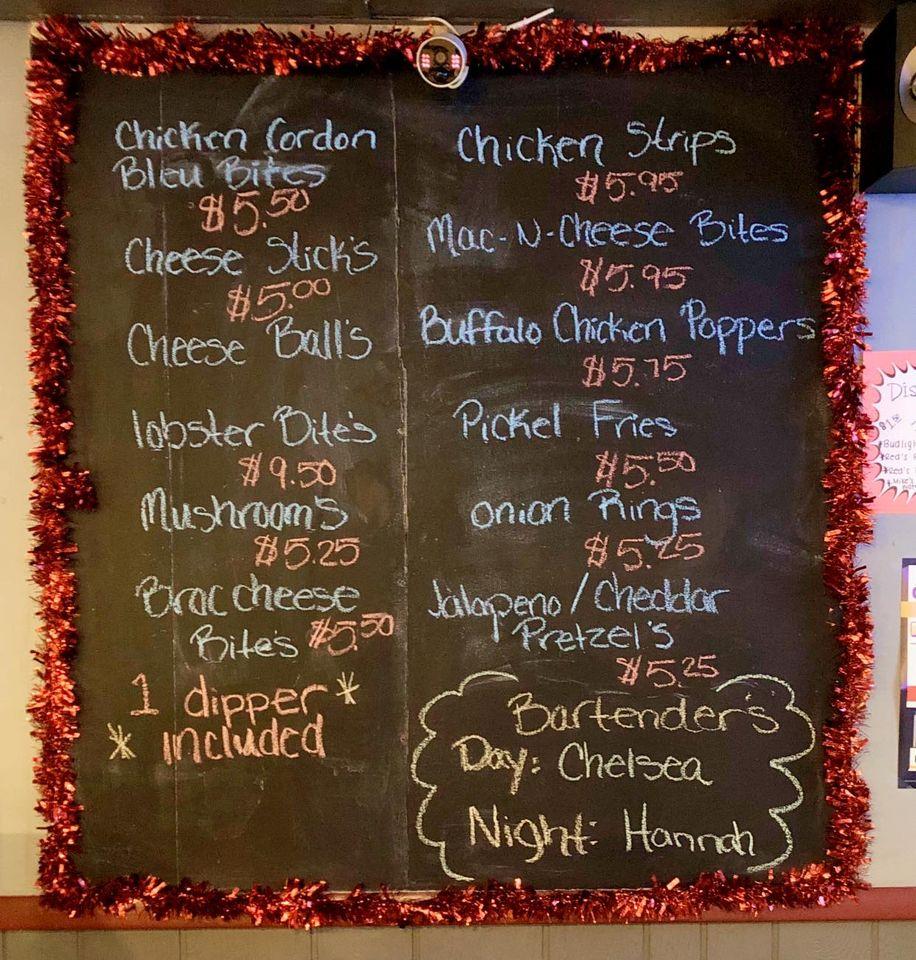 Chicken Cordon
Bleu Bites
$5.50
Cheese Stick's
$5.00
Cheese Ball's
lobster Bite's
$9.50
Mushroom's
$5.25
Broccheese
Bite's $5.50
1 dipper *
* included
Chicken Strips
$5.95
Mac-N-Cheese Bites
$5.95
Buffalo Chicken Poppers
$5.75
Pickel Fries
$5.50
onion Rings
$5.25
Jalapeno/Cheddar
Pretzel's
$5.25
Bartender's
Day: Chelsea
Night: Hannah